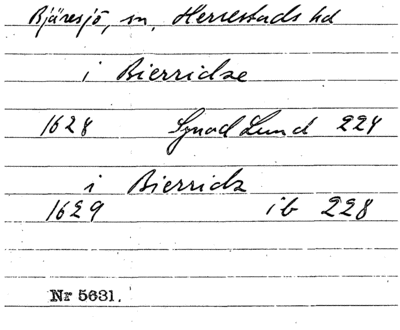 Bjäresjö, sn, Herrestads hd
i Bierridze
1628 Synod Lund 224
i Bierridz
1629 ib 228
Nr 5631.